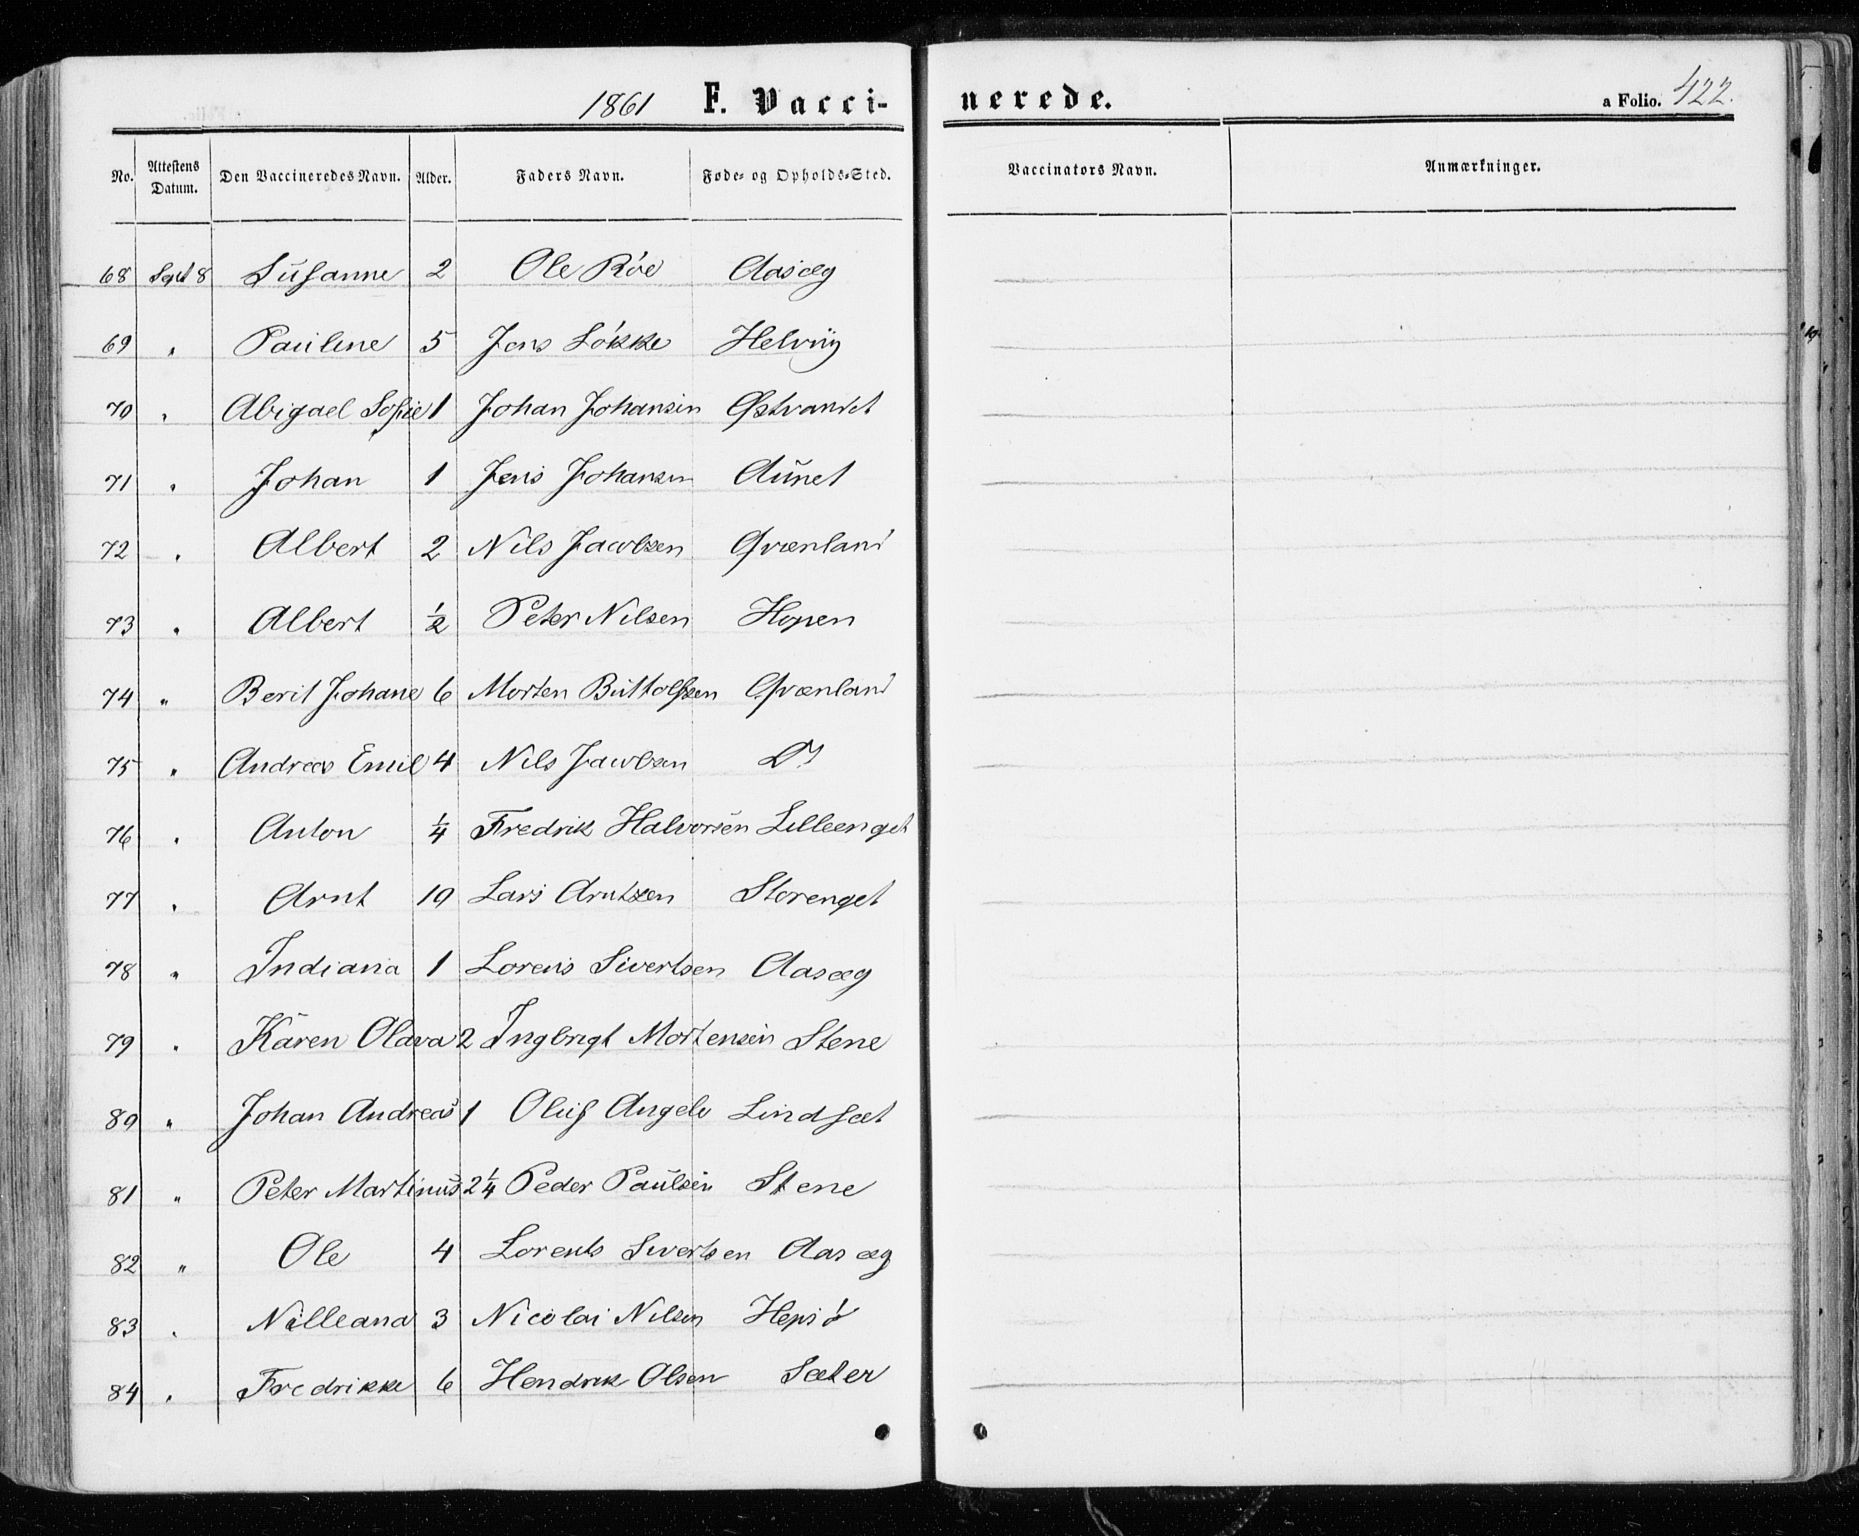 1861 F. Vacci- nerede. a Folio. 422.
No. Attestens Datum. Den Vaccineredes Navn. Alder. Faders Navn. Føde- og Opholds-Sted. Vaccinators Navn. Anmærkninger.
68 Sept 8 Susanne 2 Ole Røe Aasæg
69 " Pauline 5 Jens Løkke Helving
70 " Abigael Sofie 1 Johan Johansen Østvandet
71 " Johan 1 Jens Johansen Aunet
72 " Albert 2 Nils Jacobsen Qvænland
73 " Albert ½ Peter Nilsen Hopen
74 " Berit Johane 6 Morten Buttolfsen Qvænland
75 " Andreas Emil 4 Nils Jacobsen Do
76 " Anton ¼ Fredrik Halvorsen Lilleenget
77 " Arnt 10 Lars Arntzen Storenget
78 " Indiana 1 Lorens Sivertsen Aasæg
79 " Karen Olava 2 Ingbrigt Mortensen Stene
80 " Johan Andreas 1 Oluf Angelo Lindsæt
81 " Peter Martinus 2¼ Peder Paulsen Stene
82 " Ole 4 Lorents Sivertsen Aasæg
83 " Nilleana 3 Nicolai Nilsen Hepsø
84 " Fredrikke 6 Hendrik Olsen Sæter